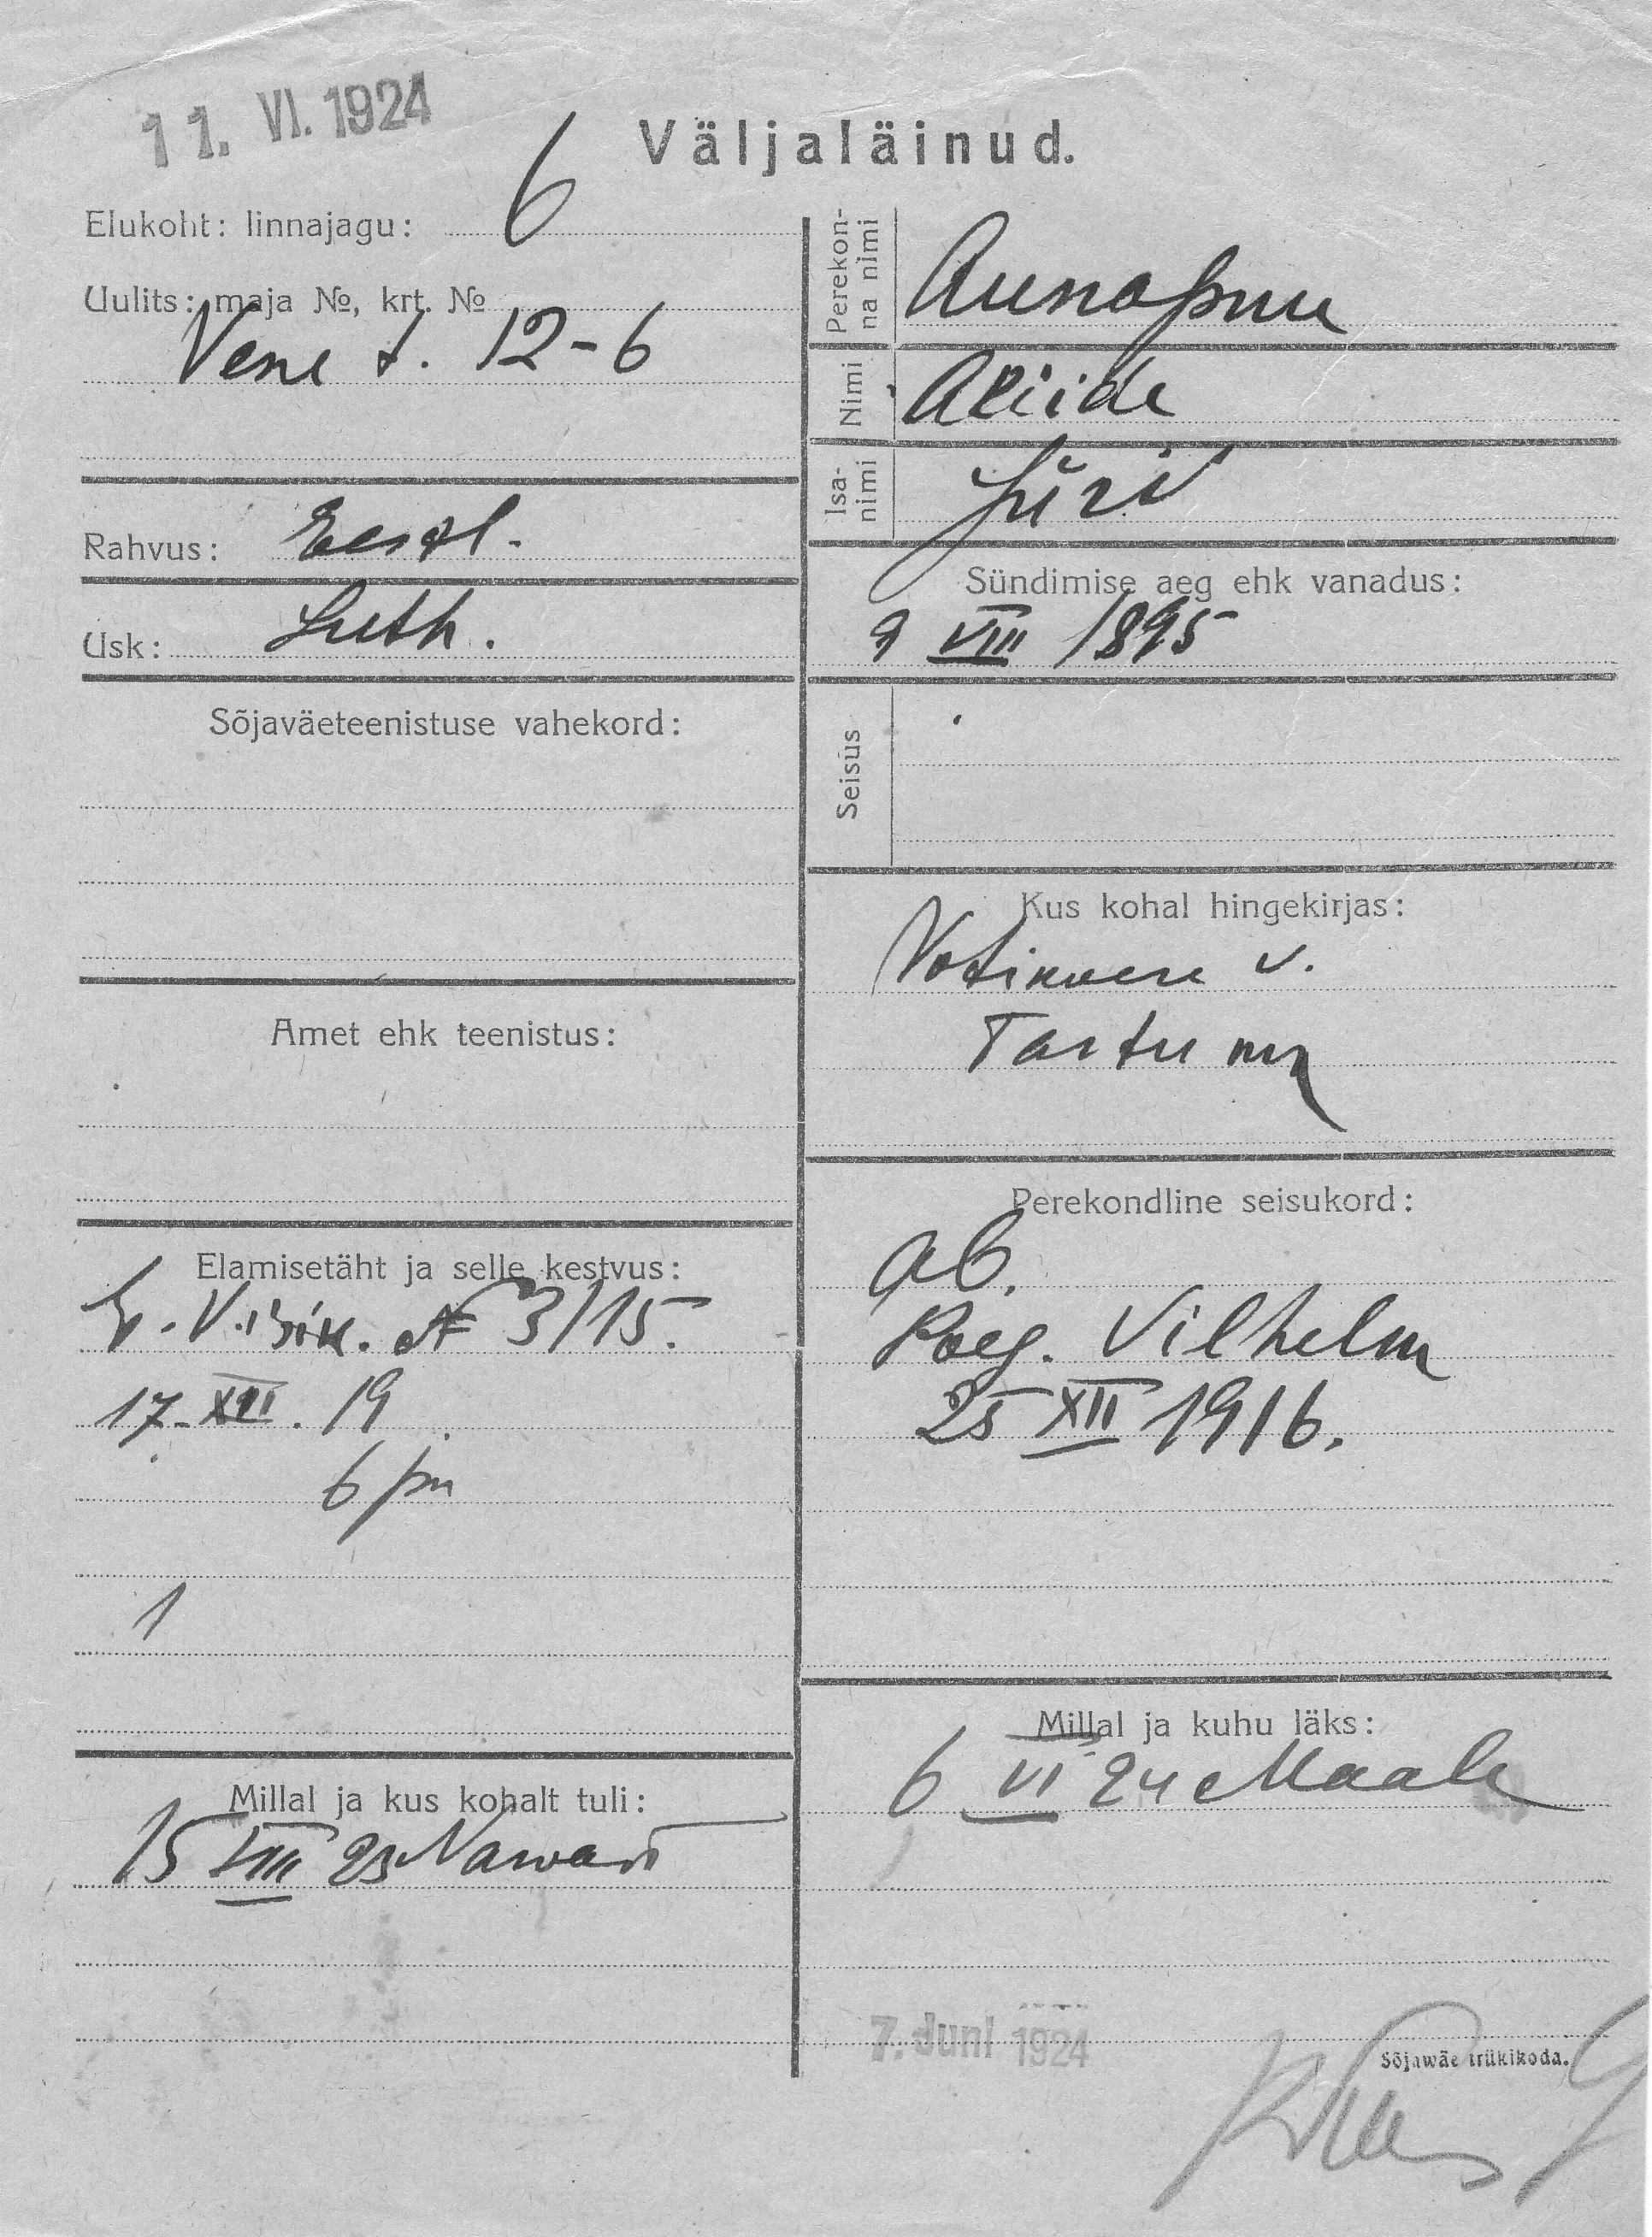 11. VI. 1924
Väljaläinud.
Elukoht: linnajagu: 6
Uulits: maja №, krt. №
Vene t. 12-6
Rahvus: Eestl.
Usk: Luth.
Sõjaväeteenistuse vahekord:
Amet ehk teenistus:
Elamisetäht ja selle kestvus:
№ 3/15.
17. XII. 19
6
1
Millal ja kus kohalt tuli:
15 VIII 23 Narwast
Perekonna nimi
Aunapuu
Nimi
Aliide
Isanimi
Jüri
Sündimise aeg ehk vanadus:
9 VIII 1895
Seisus
Kus kohal hingekirjas:
Votikvere v.
Tartu m
Perekondline seisukord:
ab.
Poeg. Vilhelm
25 XII 1916.
Millal ja kuhu läks:
6 VI 24 Maale
7. Juni 1924
Sõjawäe trükikoda.